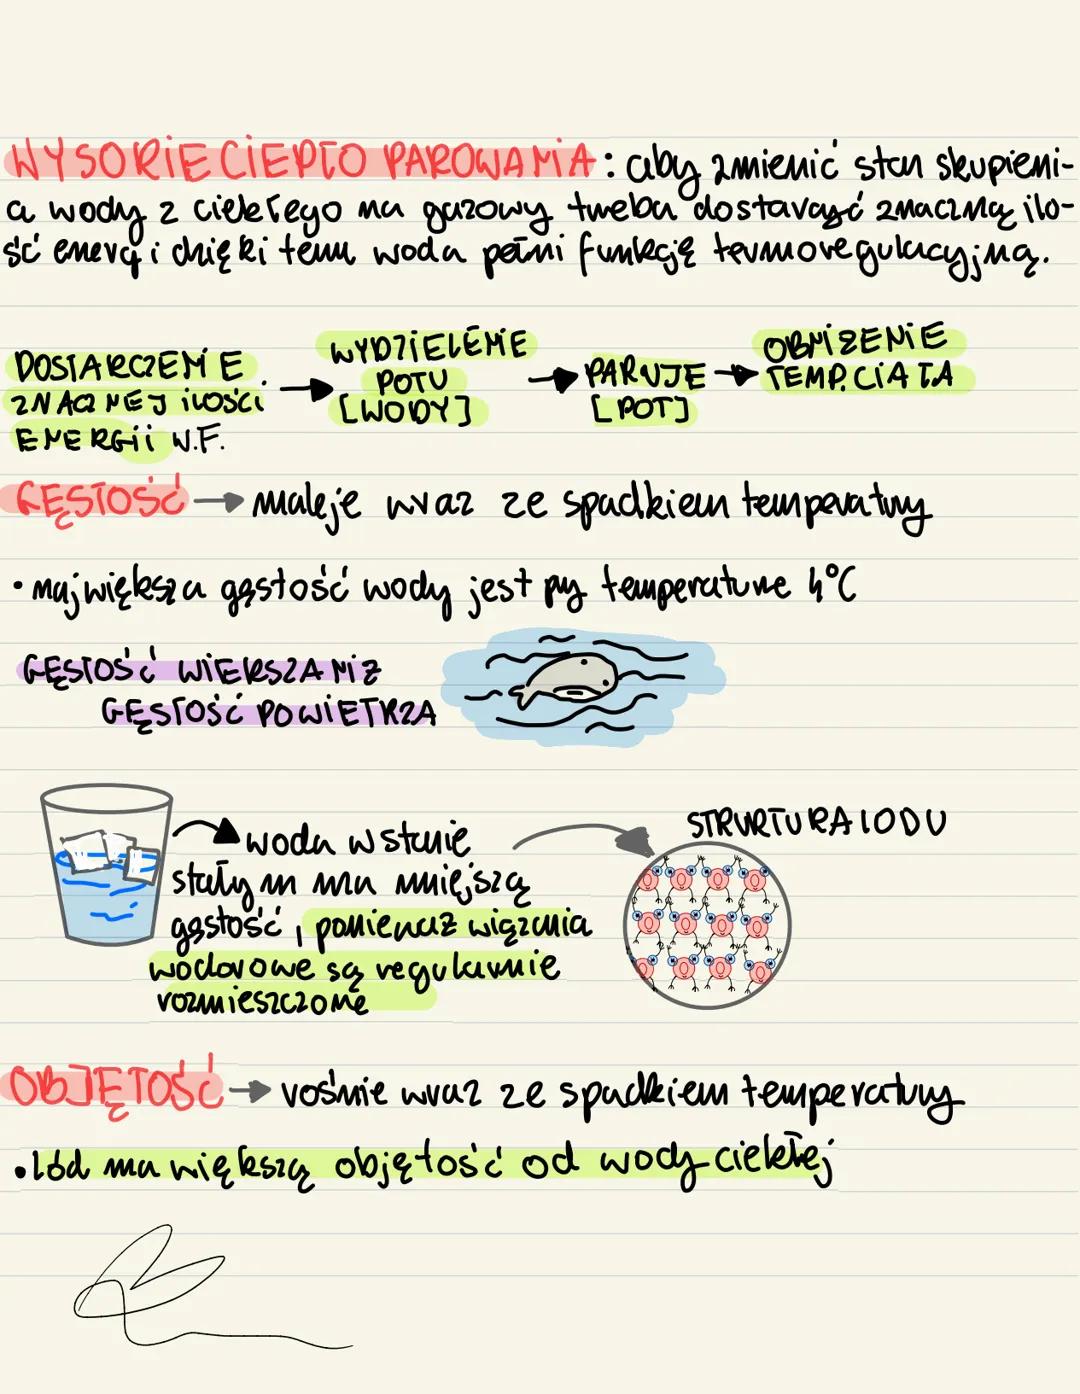 WYSOKIE CIEPŁO PAROWANIA: aby zmienić stan skupieni-
a wody z ciekłego na gazowy trzeba dostarczyć znaczną ilo-
ść energii dzięki temu woda pełni funkcję termoregulacyjną.
DOSTARCZENIE
ZNACZNEJ ILOŚCI
ENERGii W.F.
WYDZIELENIE
POTU
[WODY]
PARUJE
[POT]
OBNIŻENIE
TEMP. CIAŁA
GĘSTOŚĆ → maleje wraz ze spadkiem temperatury
• największa gęstość wody jest przy temperaturze 4°C
GĘSTOŚĆ WIĘKSZA NIŻ
GĘSTOŚĆ POWIETRZA
woda w stanie
stałym ma mniejszą
gęstość, ponieważ wiązania
wodorowe są regularnie
rozmieszczone
STRUKTURA LODU
OBJĘTOŚĆ → rośnie wraz ze spadkiem temperatury
• lód ma większą objętość od wody ciekłej